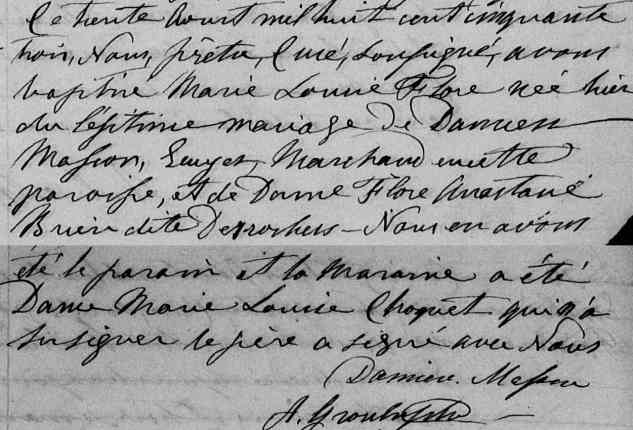 Le trente Avout mil huit cent cinquante
trois, Nous, prêtre, Curé, soussigné, avons
baptisé Marie Louise Flore neé hier
du légitime mariage de Damien
Masson, Ecuyer, Marchand en cette
paroisse, et de Dame Flore Anastasie
Brien dite Desrochers – Nous en avons
été le parain et la maraine a été
Dame Marie Louise Choquet qui n'a
su signer le père a signé avec Nous
Damien Masson